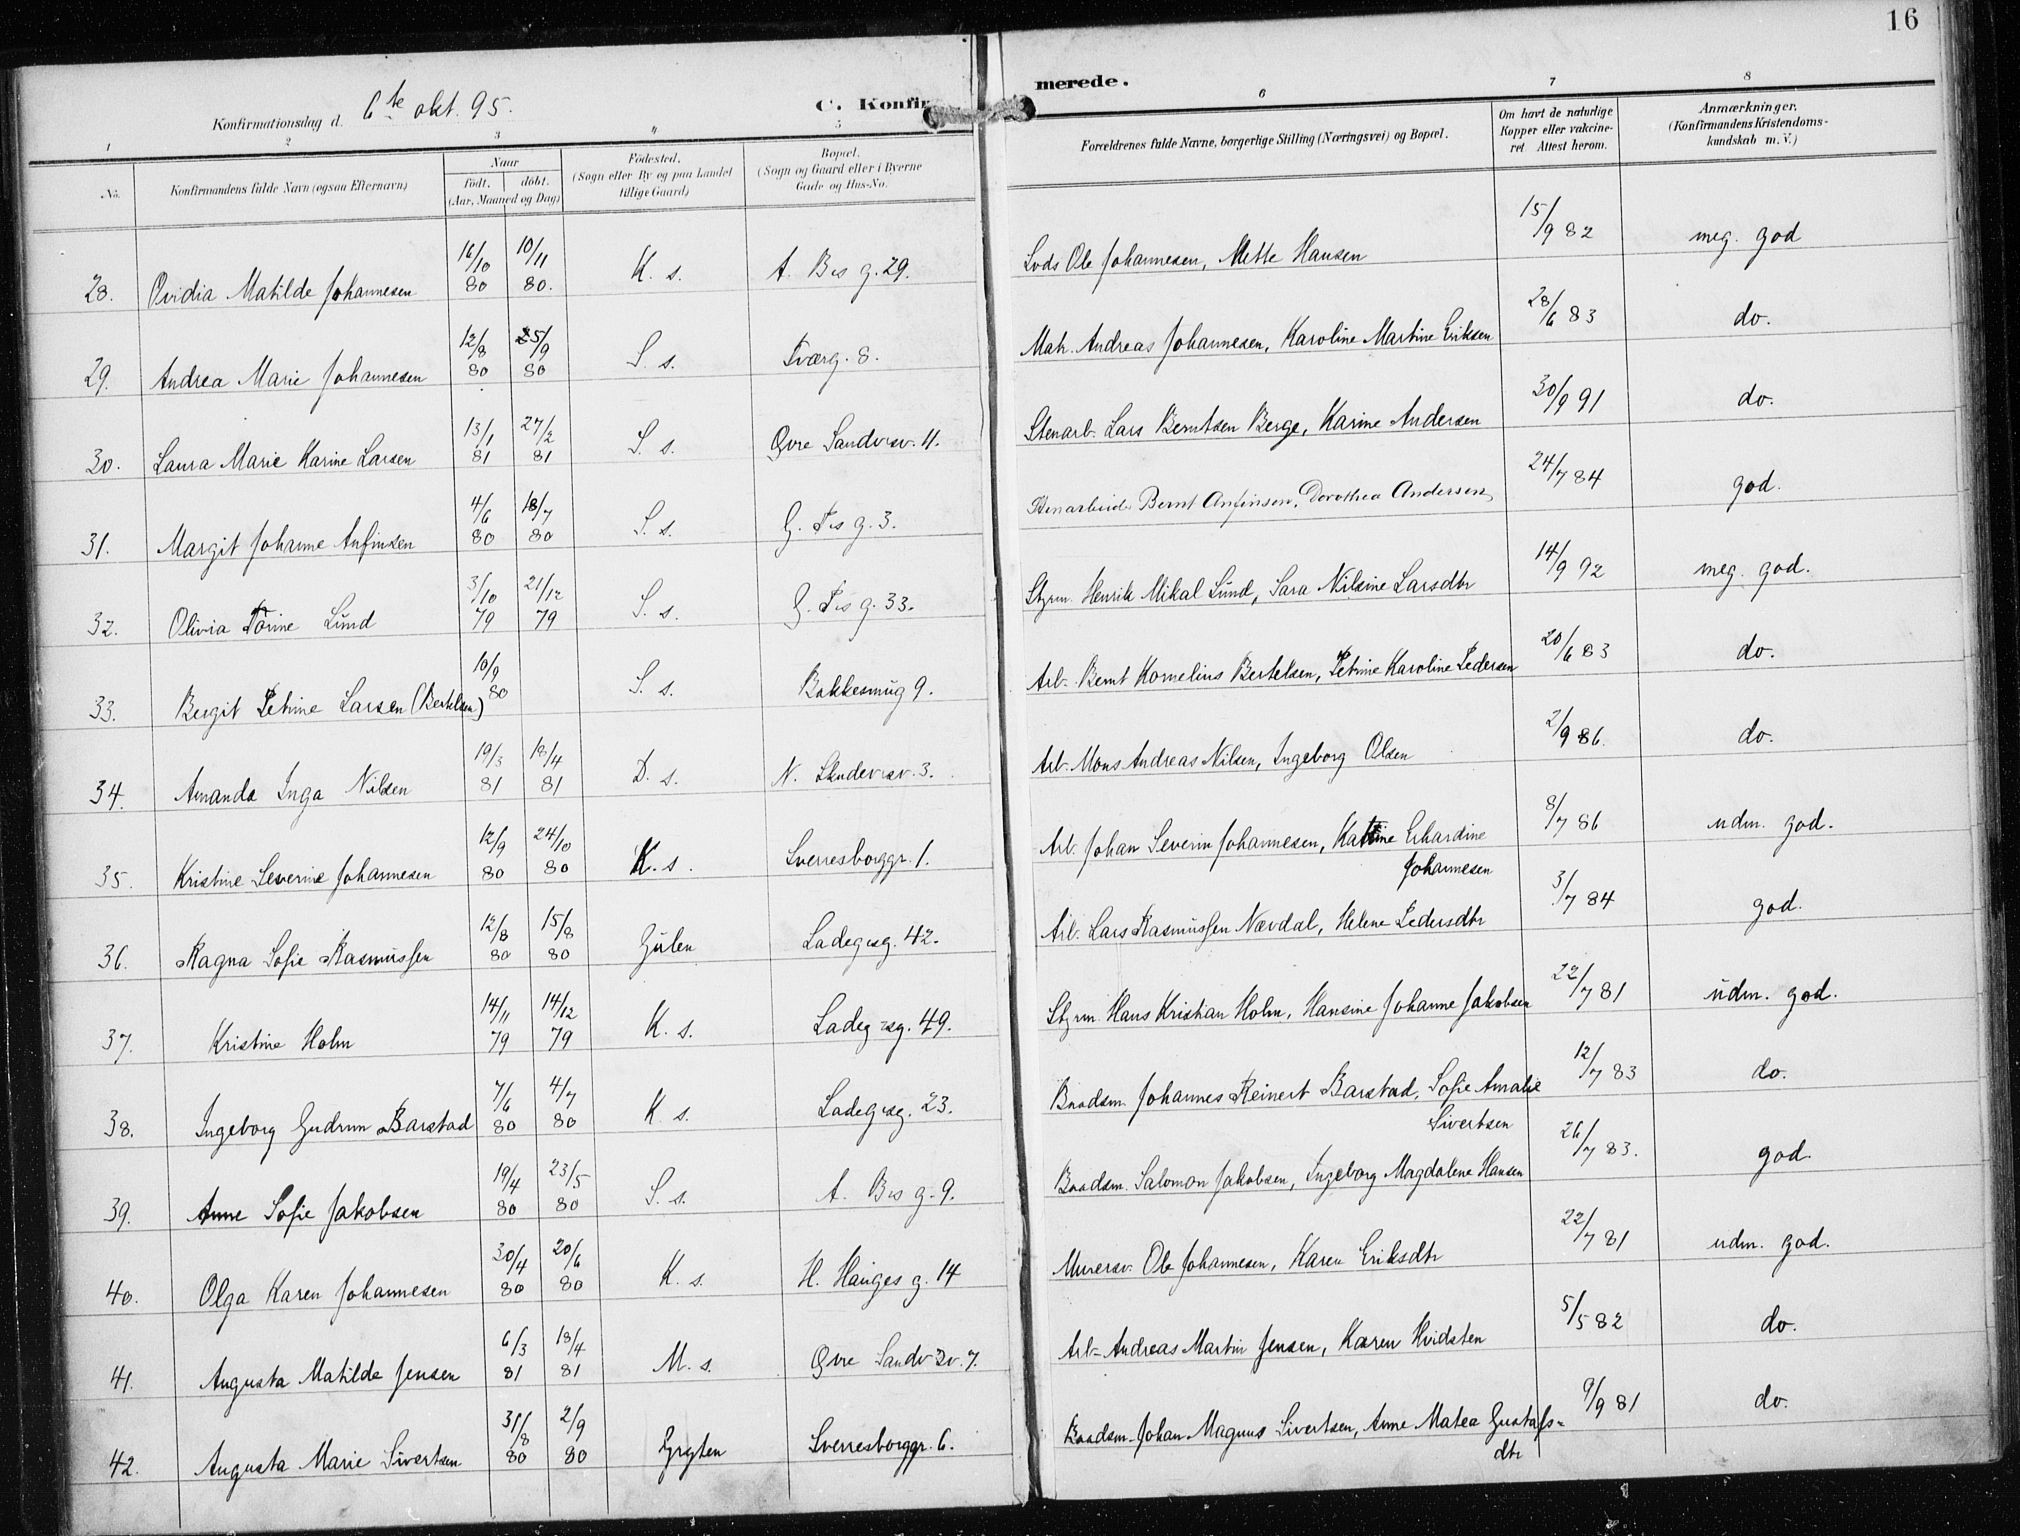 16
C. Konfir merede.
Konfirmationsdag d. 6te okt. 95.
1 2 3 4 5 6 7 8
No.
Konfirmandens fulde Navn (ogsaa Efternavn)
Naar
født. døbt.
(Aar, Maaned og Dag)
Fødested.
(Sogn eller By og paa Landet
tillige Gaard)
Bopæl.
(Sogn og Gaard eller i Byerne
Gade og Hus-No.
Forældrenes fulde Navne, borgerlige Stilling (Næringsvei) og Bopæl.
Om havt de naturlige
Kopper eller vakcine-
ret Attest herom.
Anmærkninger.
(Konfirmandens Kristendoms-
kundskab m. V.)
28. Ovidia Matilde Johannesen 16/10 80 10/11 80. K. s. A. Bs g. 29. Lods Ole Johannesen, Mette Hansen 15/9 82 meg. god
29. Andrea Marie Johannesen 12/8 80 25/9 80 S. s. Tværg. 8. Matr. Andreas Johannesen, Karoline Martine Eriksen 28/6 83 do.
30. Laura Marie Karine Larsen 13/1 81 27/2 81 S. s. Øvre Sandvsv. 11. Stenarb. Lars Berntsen Berge, Karine Andersen 30/9 91 do.
31. Margit Johanne Anfinsen 4/6 80 18/7 80 S. s. G. Ts g. 3. Stenarbeid. Bernt Anfinsen, Dorothea Andersen 24/7 84 god.
32. Olivia Torine Lund 3/10 79 21/12 79 S. s. G. Ts g. 33. Styrm. Henrik Mikal Lund, Sara Nilsine Larsdtr 14/9 92 meg. god.
33. Bergit Petrine Larsen (Bertelsen) 10/9 80 S. s. Bakkesmug 9. Arb. Bernt Kornelius Bertelsen, Petrine Karoline Pedersen 20/6 83 do.
34. Amanda Inga Nilsen 19/3 81 18/4 81 D. s. N. Skudevsv. 3. Arb. Mons Andreas Nilsen, Ingeborg Olsen 2/9 86. do.
35. Kristine Severine Johannesen 12/9 80 24/10 80 K. s. Sverresborggr. 1. Arb. Johan Severin Johannesen, Katrine Erhardine
Johannesen 8/7 86 udm. god.
36. Ragna Sofie Rasmussen 12/8 80 15/8 80 Gulen Ladegsg. 42. Arb. Lars Rasmussen Nævdal, Helene Pedersdtr 3/7 84 god.
37. Kristine Holm 14/11 79 14/12 79 K. s. Ladegsg. 49. Styrm. Hans Kristian Holm, Hansine Johanne Jakobsen 22/7 81 udm. god.
38. Ingeborg Gudrun Barstad 7/6 80 4/7 80 K. s. Ladegsg. 23. Baadsm. Johannes Reinert Barstad, Sofie Amalie
Sivertsen 12/7 83 do.
39. Anne Sofie Jakobsen 19/4 80 23/5 80 S. s. A. Bs g. 9. Baadsm. Salomon Jakobsen, Ingeborg Magdalene Hansen 26/7 83. god.
40. Olga Karen Johannesen 30/4 80 20/6 80 K. s. H. Hauges g. 14 Murersv. Ole Johannesen, Karen Eriksdtr 22/7 81 udm. god.
41. Augusta Matilde Jensen 6/3 81 18/4 81 M. s. Øvre Sandvsv. 7. Arb. Andreas Martin Jensen, Karen Hvidsten 5/5 82 do.
42. Augusta Marie Sivertsen 31/8 80 2/9 80 Gryten Sverresborggr. 6. Baadsm. Johan Magnus Sivertsen, Anne Matea Gustafs-
dtr 9/9 81 do.